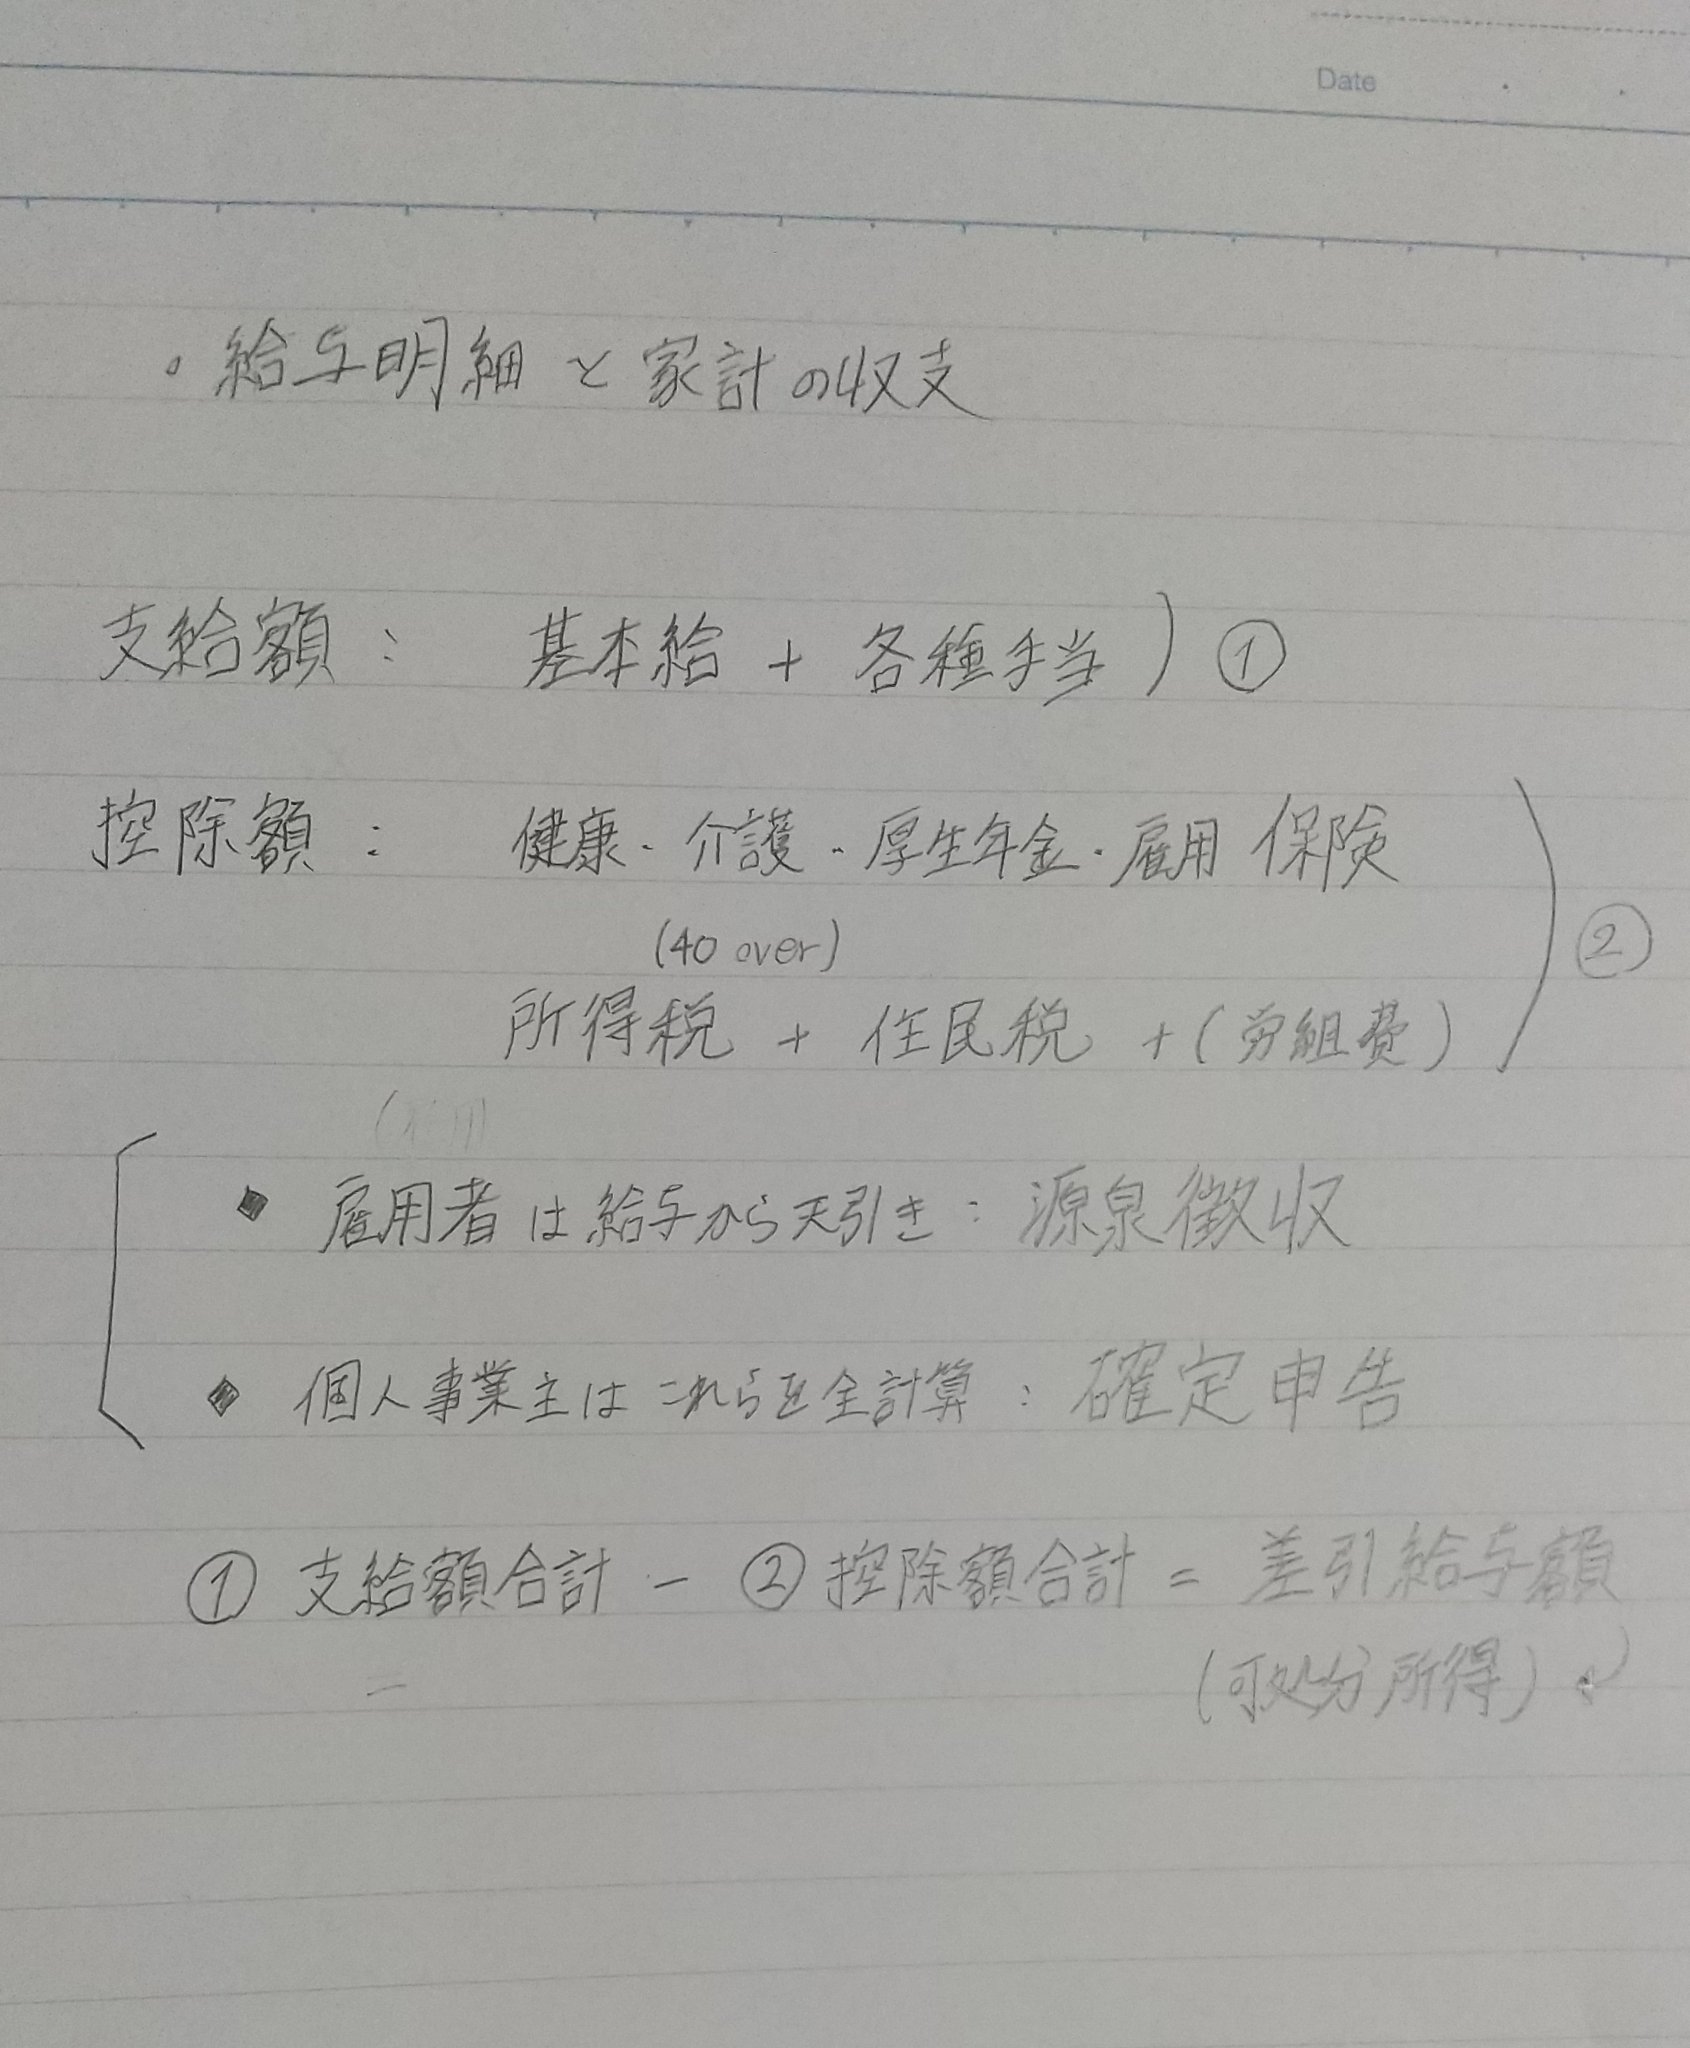 Date
・給与明細と家計の収支
支給額： 基本給 + 各種手当 ) ①
控除額： 健康・介護・厚生年金・雇用 保険
(40 over)
②
所得税 + 住民税 + (労組費)
◆ 雇用者は給与から天引き：源泉徴収
◆ 個人事業主はこれらを全計算：確定申告
① 支給額合計 － ② 控除額合計 = 差引給与額
(可処分所得)